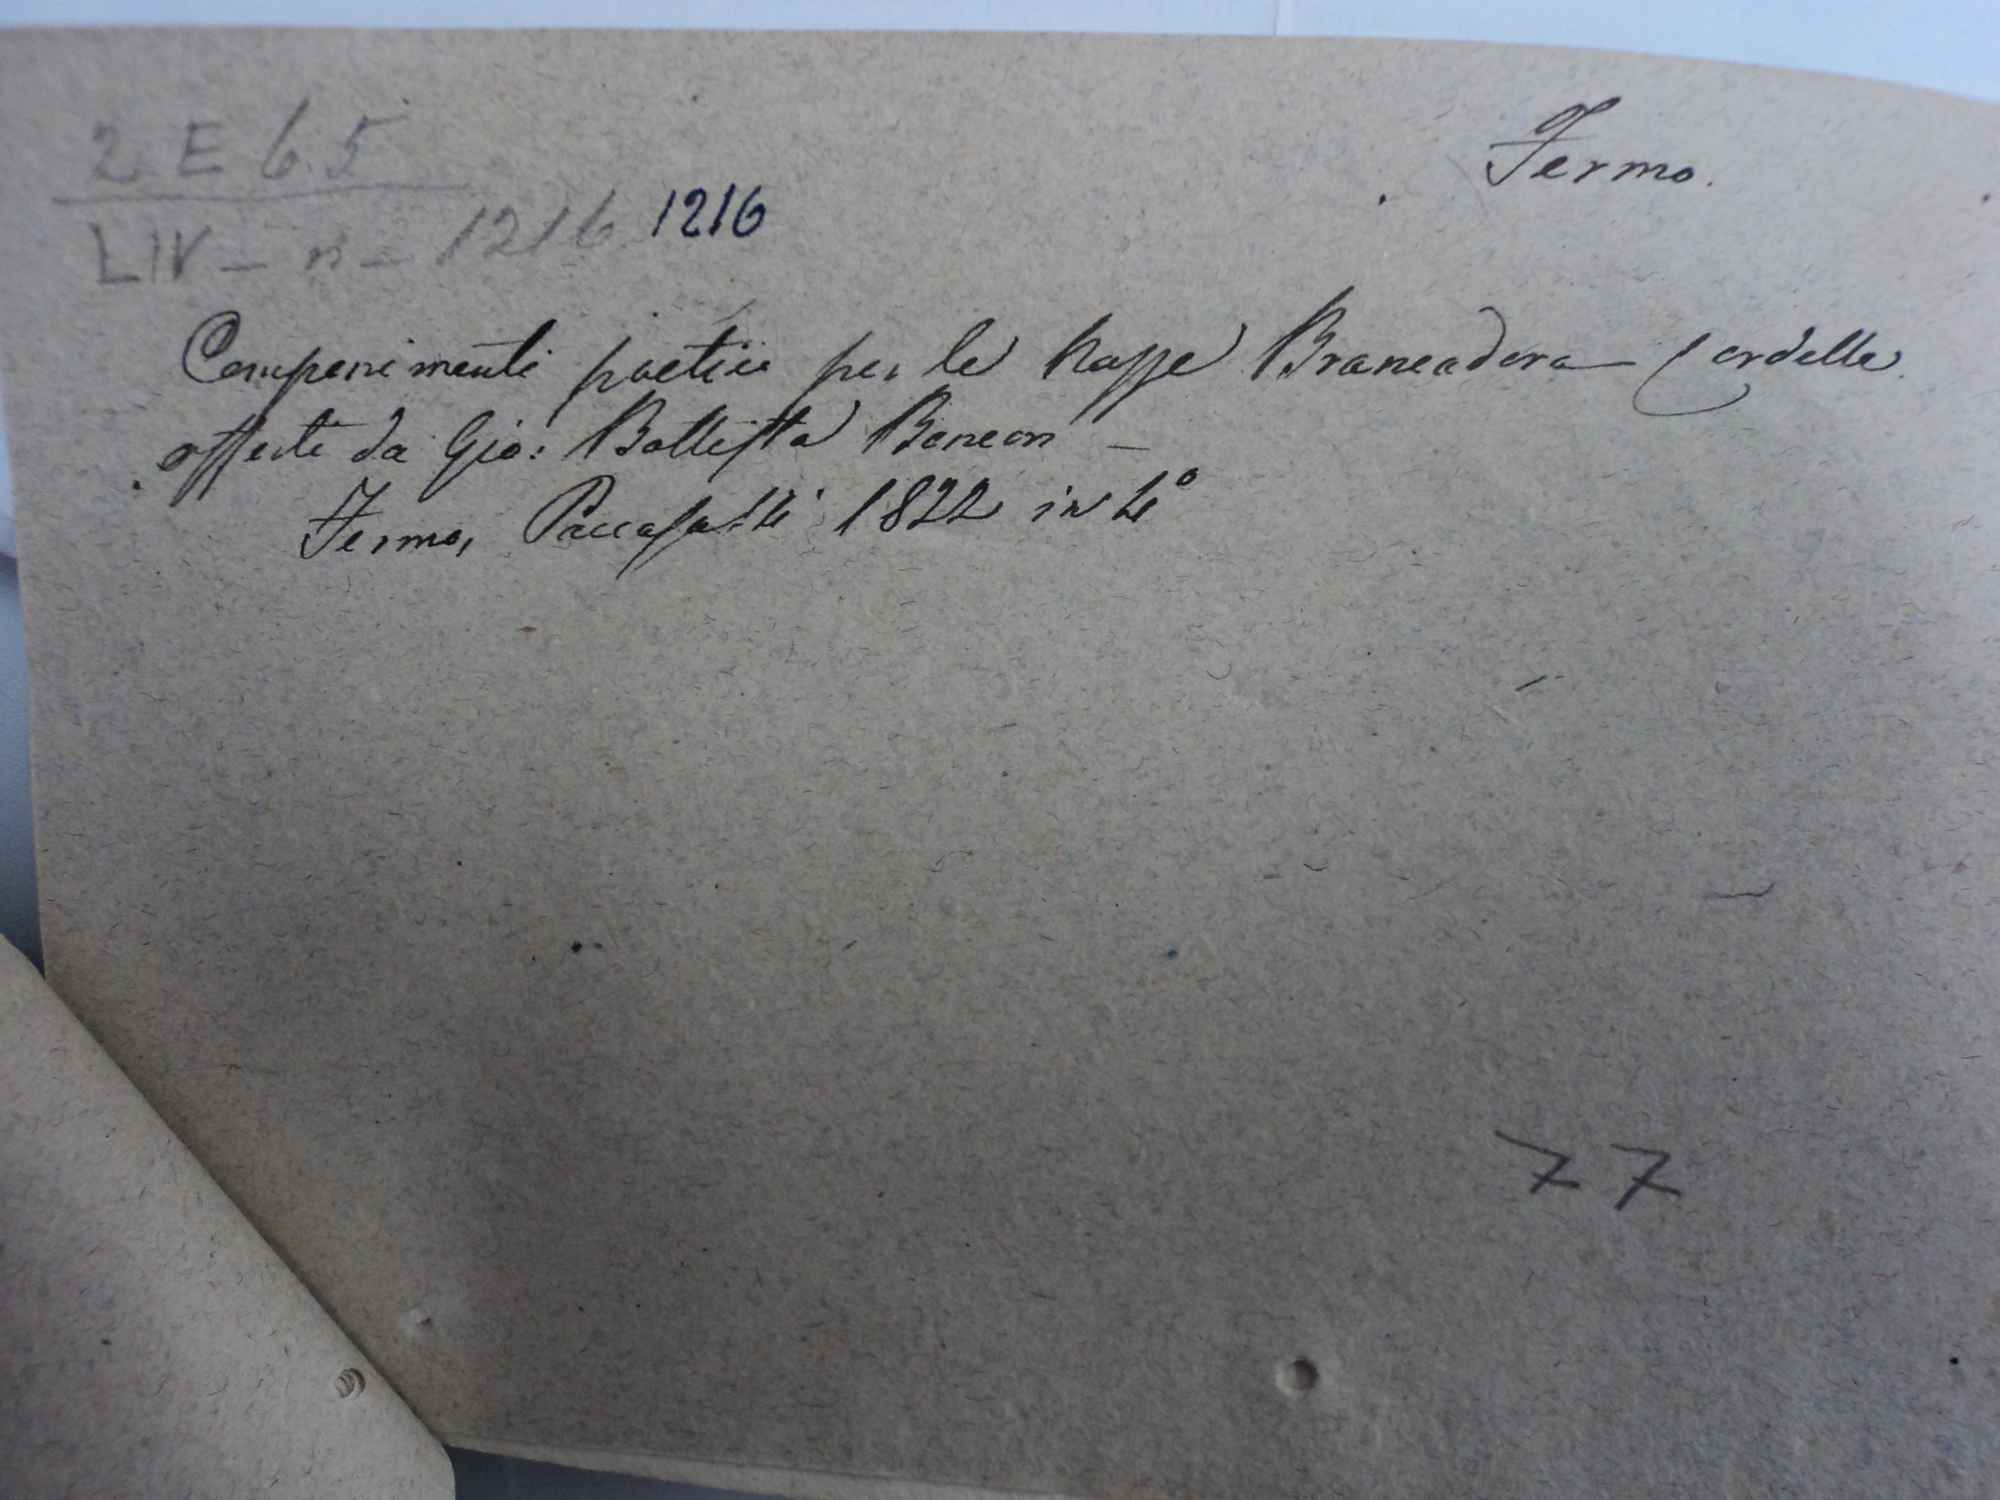 2 E 6 5
Fermo.
LIV - n - 1216 1216
Componimenti poetici per le Nozze Brancadoro Cordella
offerti da Gio: Battista Bencon
Fermo, Paccasassi 1822 in 4º
77